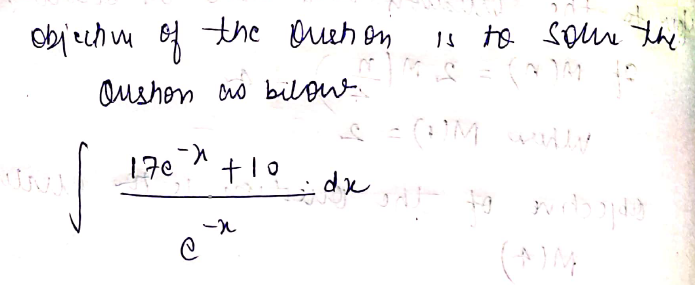 objective of the Question is to solve the
Question as below.
∫ (17e^-x + 10) / e^-x . dx